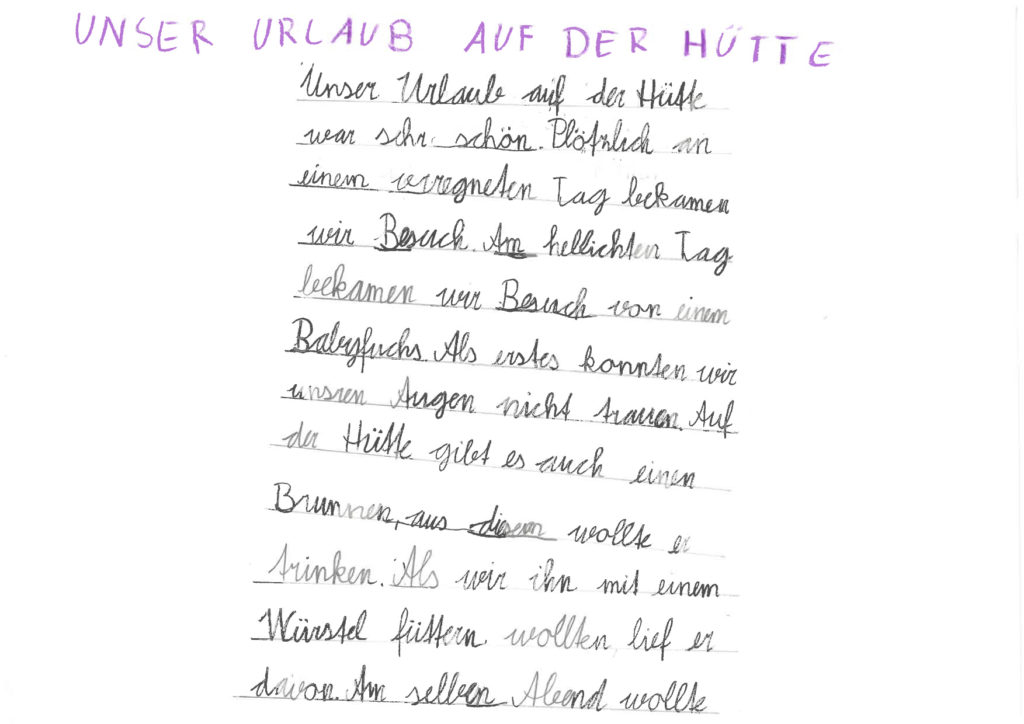 UNSER URLAUB AUF DER HÜTTE
Unser Urlaub auf der Hütte
war sehr schön. Plötzlich an
einem verregneten Tag bekamen
wir Besuch. Am hellichten Tag
bekamen wir Besuch von einem
Babyfuchs. Als erstes konnten wir
unsren Augen nicht trauen. Auf
der Hütte gibt es auch einen
Brunnen, aus diesem wollte er
trinken. Als wir ihn mit einem
Würstel füttern wollten, lief er
davon. Am selben Abend wollte